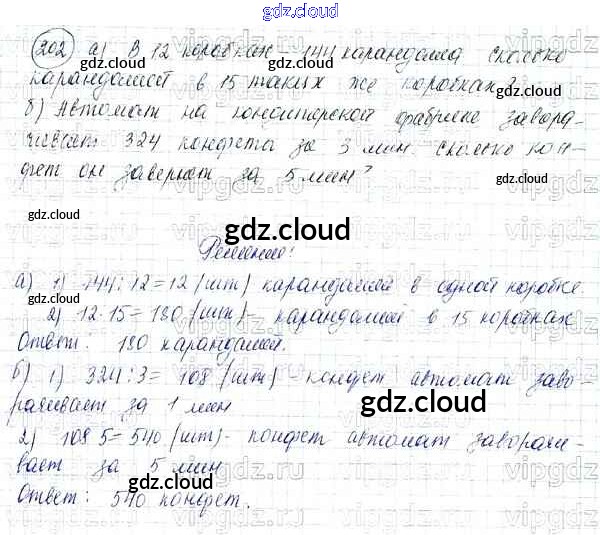 gdz.cloud
202 а) В 12 коробках 144 карандаша сколько
карандашей в 15 таких же коробках?
б) Автомат на кондитерской фабрике завора-
чивает 324 конфеты за 3 мин. сколько кон-
фет он завернет за 5 мин?
gdz.cloud
gdz.cloud
gdz.cloud
Решение:
а) 1) 144:12=12 (шт) карандашей в одной коробке
gdz.cloud
2) 12·15=180 (шт)- карандашей в 15 коробках
gdz.cloud
Ответ: 180 карандашей.
б) 1) 324:3= 108 (шт)- конфет автомат заво-
рачивает за 1 мин
gdz.cloud
2) 108 5=540 (шт)- конфет автомат заворачи-
вает за 5 мин
gdz.cloud
gdz.cloud
Ответ: 540 конфет.